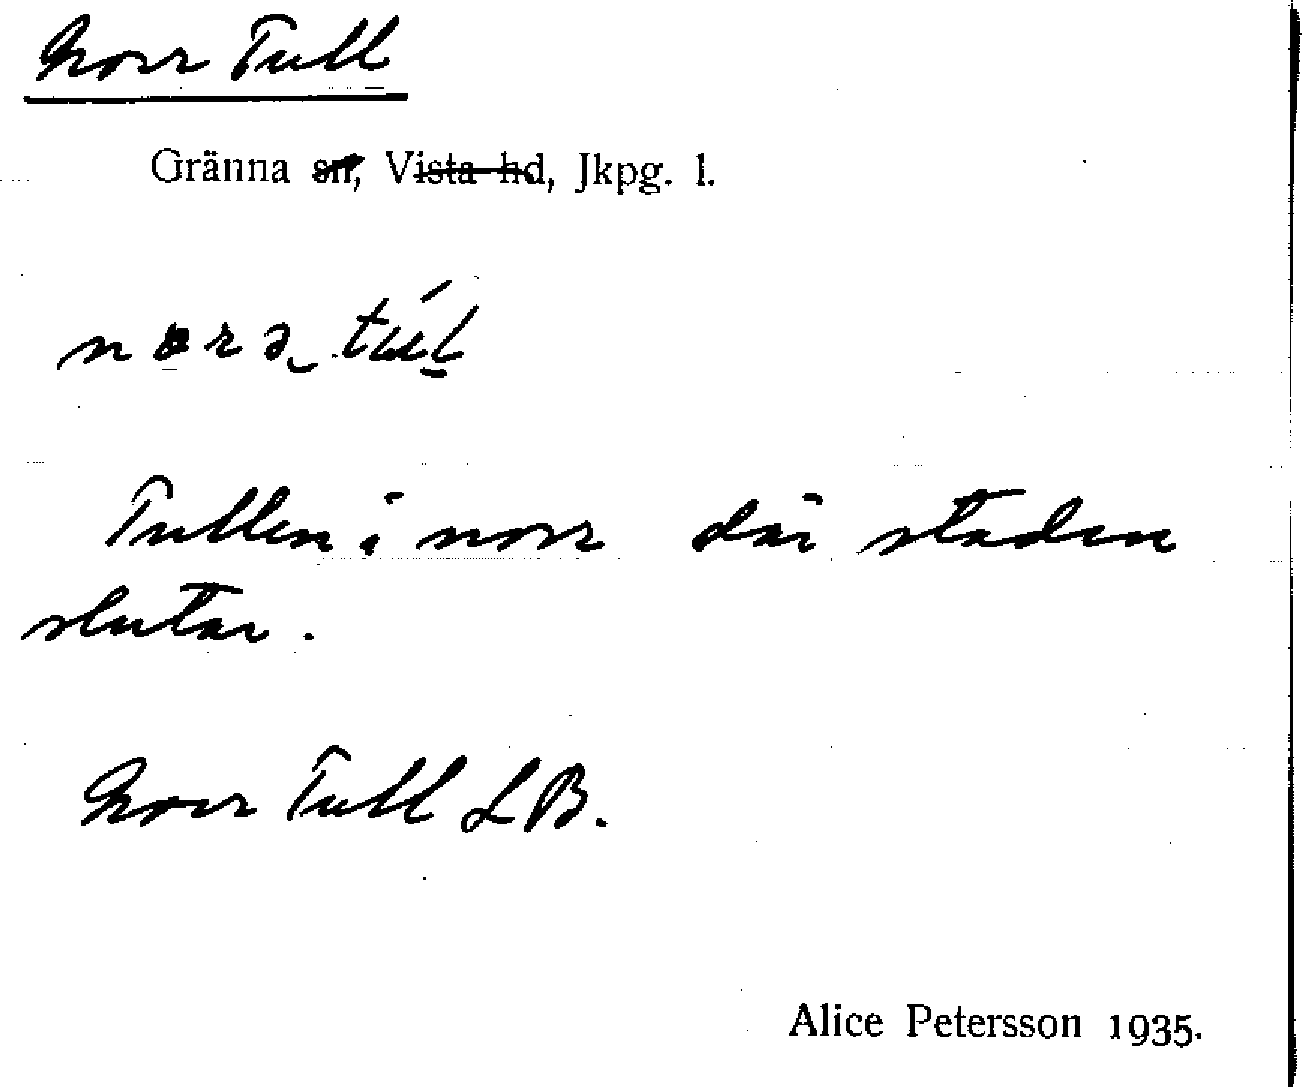 Norr Tull
Gränna sn, Vista hd, Jkpg. l.
norə tul
Tullen i norr där staden
slutar.
Norr Tull LB.
Alice Petersson 1935.